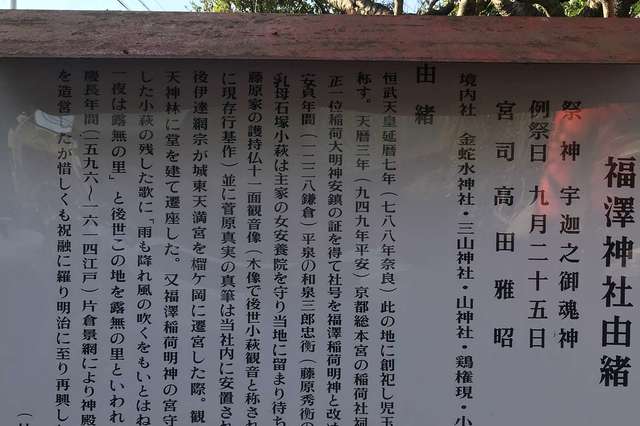 福澤神社由緒
祭神 宇迦之御魂神
例祭日 九月二十五日
宮司 高田雅昭
境内社 金蛇水神社・三山神社・山神社・鶏権現・小
由緒
恒武天皇延暦七年(七八八年奈良)此の地に創祀し児玉
称す。天暦三年(九四九年平安)京都総本宮の稲荷社祠
正一位稲荷大明神安鎮の証を得て社号を福澤稲荷明神と改め
安貞年間(一二二八鎌倉)平泉の和泉三郎忠衡(藤原秀衡の
乳母石塚小萩は主家の女安養院を守り当地に留まり待ち
藤原家の護持仏十一面観音像(木像で後世小萩観音と称され
に現存行基作)並に菅原真実の真筆は当社内に安置され
後伊達綱宗が城東天満宮を榴ケ岡に遷宮した際。観
天神林に堂を建て遷座した。又福澤稲荷明神の宮守
した小萩の残した歌に、「雨も降れ風の吹くをもいとはね
一夜は露無の里」と後世この地を露無の里といわれ
慶長年間(一五九六〜一六一四江戸)片倉景綱により神殿
を造営したが惜しくも祝融に罹り明治に至り再興し